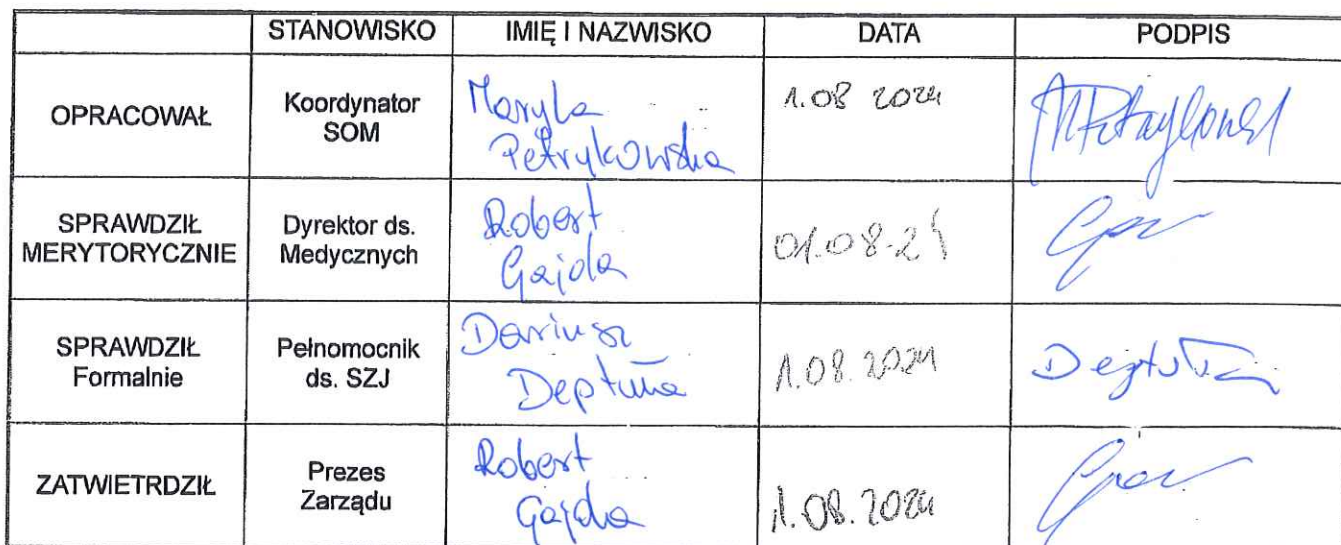 STANOWISKO IMIĘ I NAZWISKO DATA PODPIS
OPRACOWAŁ Koordynator SOM Maryla Petrykowska 1.08 2024
SPRAWDZIŁ MERYTORYCZNIE Dyrektor ds. Medycznych Robert Gajda 01.08.24
SPRAWDZIŁ Formalnie Pełnomocnik ds. SZJ Dariusz Deptuła 1.08.2024 Deptuła
ZATWIETRDZIŁ Prezes Zarządu Robert Gajda 1.08.2024